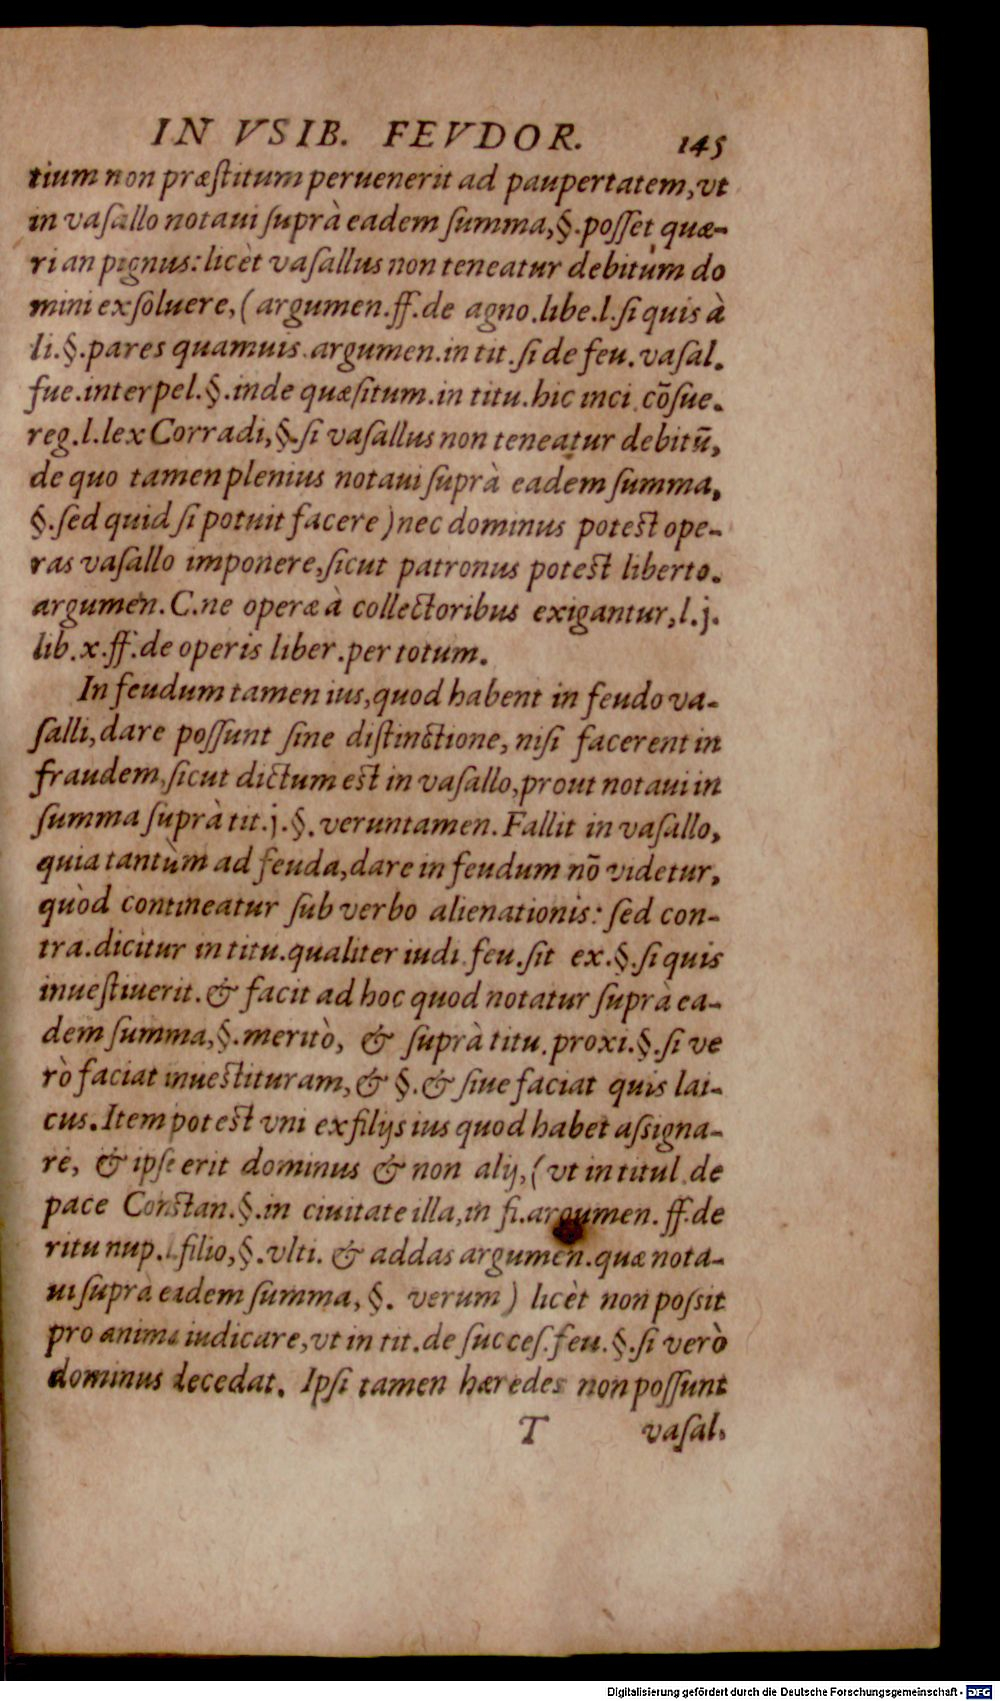 IN VSIB. FEVDOR. 145
tium non præſtitum peruenerit ad paupertatem, vt
in vaſallo notaui ſuprà eadem ſumma, §. poſſet quæ-
ri an pignus: licèt vaſallus non teneatur debitum do
mini exſoluere, ( argumen. ff. de agno. libe. l. ſi quis à
li. §. pares quamuis. argumen. in tit. ſi de feu. vaſal.
fue. interpel. §. inde quæſitum. in titu. hic inci. cõſue.
reg. l. lex Corradi, §. ſi vaſallus non teneatur debitũ,
de quo tamen plenius notaui ſuprà eadem ſumma,
§. ſed quid ſi potuit facere ) nec dominus poteſt ope-
ras vaſallo imponere, ſicut patronus poteſt liberto.
argumen. C. ne operæ à collectoribus exigantur, l. j.
lib. x. ff. de operis liber. per totum.
In feudum tamen ius, quod habent in feudo va-
ſalli, dare poſſunt ſine diſtinctione, niſi facerent in
fraudem, ſicut dictum eſt in vaſallo, prout notaui in
ſumma ſuprà tit. j. §. veruntamen. Fallit in vaſallo,
quia tantùm ad feuda, dare in feudum nõ videtur,
quòd contineatur ſub verbo alienationis: ſed con-
tra. dicitur in titu. qualiter iudi. feu. ſit ex. §. ſi quis
inueſtiuerit. & facit ad hoc quod notatur ſuprà ea-
dem ſumma, §. meritò, & ſuprà titu. proxi. §. ſi ve
rò faciat inueſtituram, & §. & ſiue faciat quis lai-
cus. Item poteſt vni ex filijs ius quod habet aſsigna-
re, & ipſe erit dominus & non alij, ( vt in titul. de
pace Conſtan. §. in ciuitate illa, in fi. argumen. ff. de
ritu nup. l. filio, §. vlti. & addas argumen. quæ nota-
ui ſuprà eadem ſumma, §. verum ) licèt non poſsit
pro anima iudicare, vt in tit. de ſucceſ. feu. §. ſi verò
dominus decedat. Ipſi tamen hæredes non poſſunt
T vaſal.
Digitalisierung gefördert durch die Deutsche Forschungsgemeinschaft - DFG